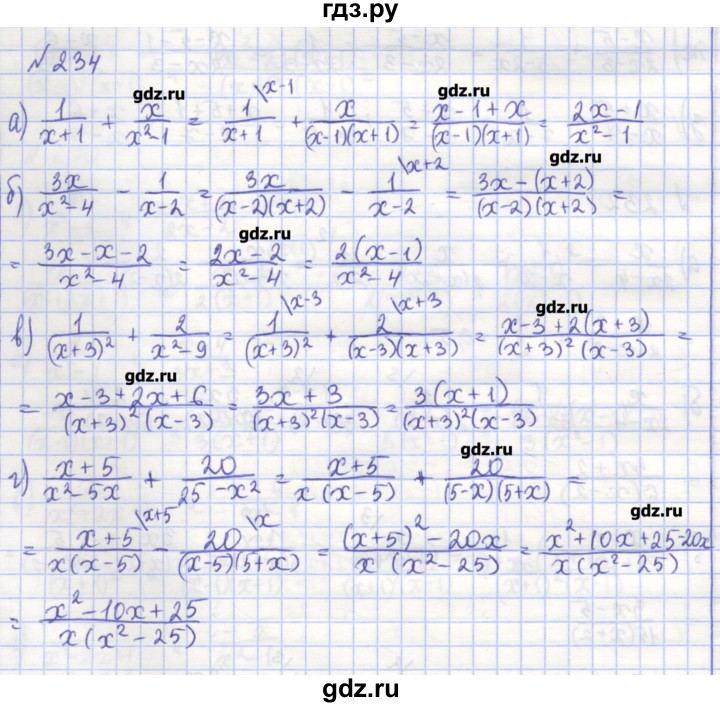 гдз.ру
№ 234
gdz.ru gdz.ru
а) 1/(x+1) + x/(x²-1) = 1/(x+1) \x-1 + x/((x-1)(x+1)) = (x-1+x)/((x-1)(x+1)) = (2x-1)/(x²-1)
б) 3x/(x²-4) - 1/(x-2) = 3x/((x-2)(x+2)) - 1/(x-2) \x+2 = (3x-(x+2))/((x-2)(x+2)) =
gdz.ru
gdz.ru
= (3x-x-2)/(x²-4) = (2x-2)/(x²-4) = 2(x-1)/(x²-4)
gdz.ru
в) 1/(x+3)² + 2/(x²-9) = 1/(x+3)² \x-3 + 2/((x-3)(x+3)) \x+3 = (x-3+2(x+3))/((x+3)²(x-3)) =
gdz.ru
= (x-3+2x+6)/((x+3)²(x-3)) = (3x+3)/((x+3)²(x-3)) = 3(x+1)/((x+3)²(x-3))
gdz.ru
г) (x+5)/(x²-5x) + 20/(25-x²) = (x+5)/(x(x-5)) + 20/((5-x)(5+x)) =
gdz.ru
= (x+5)/(x(x-5)) \x+5 - 20/((x-5)(5+x)) \x = ((x+5)²-20x)/(x(x²-25)) = (x²+10x+25-20x)/(x(x²-25))
= (x²-10x+25)/(x(x²-25))
gdz.ru